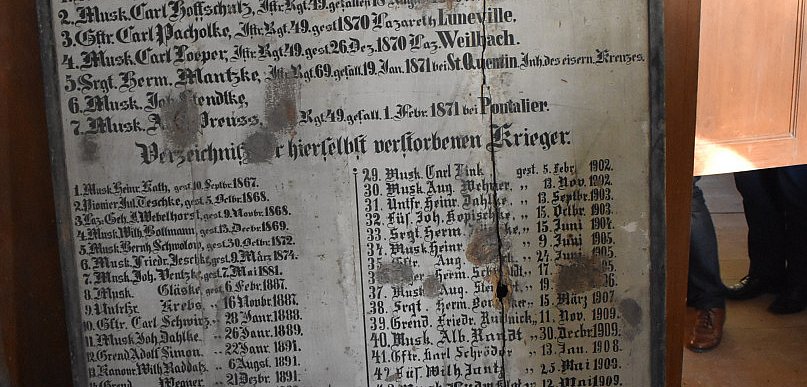 2. Musk. Carl Hoffschulz, Iftr. Rgt. 49. gefallen 18
3. Gftr. Carl Pacholke, Iftr. Rgt. 49. gest 1870 Lazareth Luneville.
4. Musk. Carl Loeper, Iftr. Rgt. 49. gest. 26. Dez. 1870 Laz. Weilbach.
5. Srgt. Herm. Mantzke, Iftr. Rgt. 69. gefall. 19. Jan. 1871 bei St. Quentin. Inh. des eisern. Kreuzes.
6. Musk. Joh. Stendtke,
7. Musk. Preuss, Rgt. 49. gefall. 1. Febr. 1871 bei Pontalier.
Verzeichniß der hierselbst verstorbenen Krieger.
1. Musk. Heinr. Kath, gest. 10. Septbr. 1867.
2. Pionier Jul. Teschke, gest. 5. Octbr. 1868.
3. Laz. Geh. I. Webelhorst, gest. 9. Novbr. 1868.
4. Musk. Wilh. Bollmann, gest. 13. Decbr. 1869.
5. Musk. Bernh. Schwolow, gest. 30. Octbr. 1872.
6. Musk. Friedr. Jeschke, gest. 9. März 1874.
7. Musk. Joh. Ventzke, gest. 7. Mai 1881.
8. Musk. Gläske, gest. 6. Febr. 1887.
9. Untrfz. Krebs, " 16 Novbr. 1887.
10. Gftr. Carl Schwirz " 28 Janr. 1888.
11. Musk. Joh. Dahlke. " 26 Janr. 1889.
12. Grend Adolf Simon. " 22 Janr. 1891.
13. Kanonr. Wilh. Raddatz. " 6 Augst. 1891.
14. Grend. Wegner. " 21 Dezbr. 1891.
29. Musk. Carl Fink gest. 5. Febr. 1902.
30. Musk. Aug. Wehner, " 13. Nov. 1902.
31. Untfz. Heinr. Dahlke, " 13. Septbr. 1903.
32. Füs. Joh. Kopischke, " 15. Octbr. 1903.
33. Srgt. Herm. " 15. Juni 1904.
34. Musk. Heinr. " 9. Juni 1905.
Gftr. Aug. " 24 Juni 1905.
Herm. " 17.
37. Musk. Aug. " 19.
38. Srgt. Herm. " 15. März 1907
39. Grend. Friedr. Rubnick, " 11. Nov. 1909.
40. Musk. Alb. Randt " 30. Decbr 1909.
41. Gftr. Karl Schröder " 13. Jan. 1908.
42. Füs. Wilh. Jantz " 25 Mai 1909.
" 12. Mai 1909.